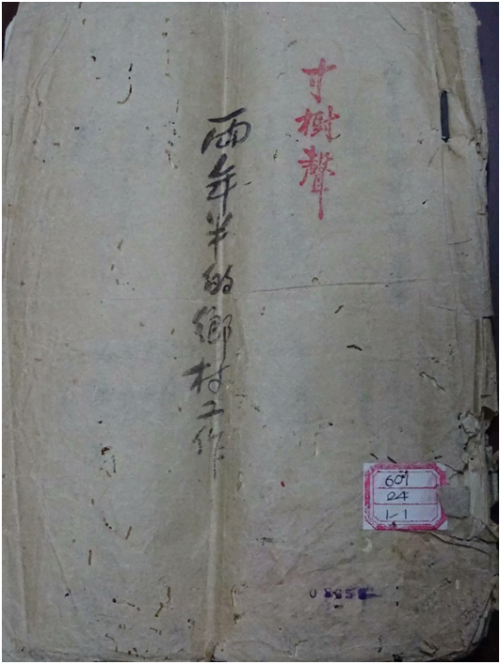 寸樹聲
兩年半的鄉村工作
601
24
1-1